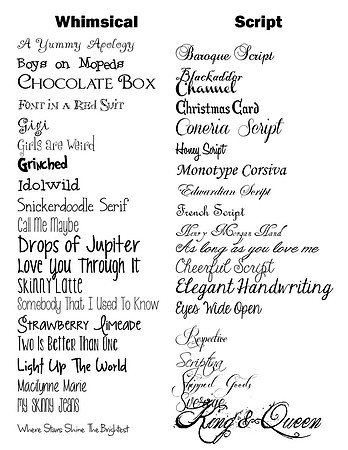 Whimsical
A Yummy Apology
Boys on Mopeds
Chocolate Box
Font in a Red Suit
Gigi
Girls are Weird
Grinched
Idolwild
Snickerdoodle Serif
Call Me Maybe
Drops of Jupiter
Love You Through It
Skinny Latte
Somebody That I Used To Know
Strawberry Limeade
Two Is Better Than One
Light Up The World
Macilynne Marie
My Skinny Jeans
Where Stars Shine The Brightest
Script
Baroque Script
Blackadder
Channel
Christmas Card
Coneria Script
Honey Script
Monotype Corsiva
Edwardian Script
French Script
Henry Morgan Hand
As long as you love me
Cheerful Script
Elegant Handwriting
Eyes Wide Open
Respective
Scriptina
Shipped Goods
King & Queen